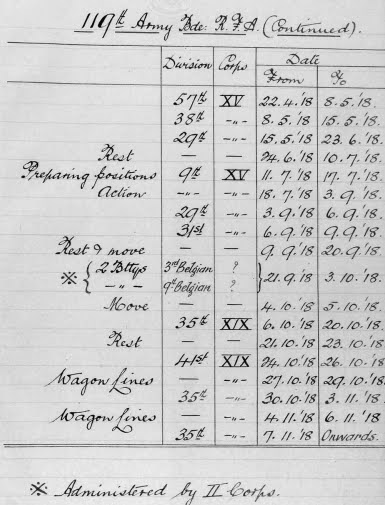 119th Army Bde: R.F.A. (Continued).
Division Corps Date
From To
57th XV 22.4.'18 8.5.'18
38th -"- 8.5.'18 15.5.'18
29th -"- 15.5.'18 23.6.'18
Rest — — 24.6.'18 10.7.'18
Preparing positions 9th XV 11.7.'18 17.7.'18
Action -"- -"- 18.7.'18 3.9.'18
29th -"- 3.9.'18 6.9.'18
31st -"- 6.9.'18 9.9.'18
Rest & move — — 9.9.'18 20.9.'18
※ { 2 Bttys 3rd Belgian ? } 21.9.'18 3.10.'18
-"- 9th Belgian ?
Move — — 4.10.'18 5.10.'18
35th XIX 6.10.'18 20.10.'18
Rest — — 21.10.'18 23.10.'18
41st XIX 24.10.'18 26.10.'18
Wagon Lines — -"- 27.10.'18 29.10.'18
35th -"- 30.10.'18 3.11.'18
Wagon Lines — -"- 4.11.'18 6.11.'18
35th -"- 7.11.'18 Onwards.
※ Administered by II Corps.